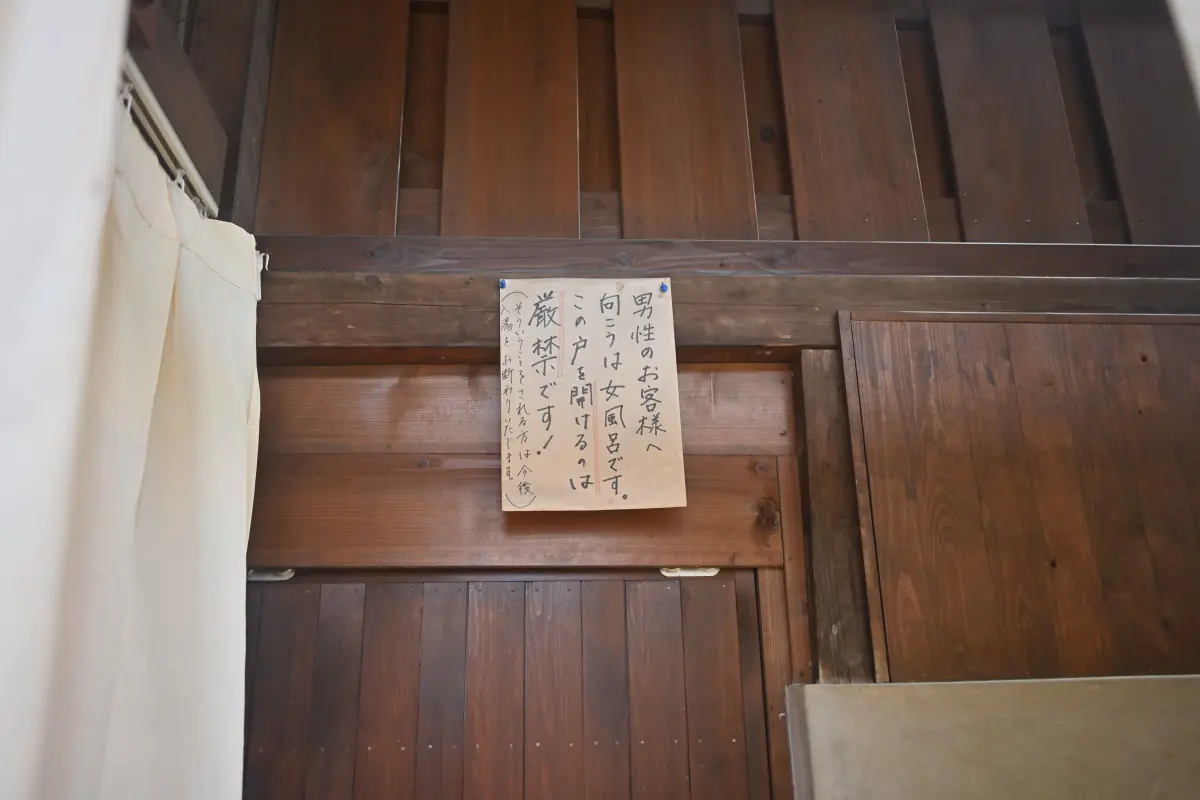 男性のお客様へ
向こうは女風呂です。
この戸を開けるのは
厳禁です!
(そういうことをされる方は今後
入湯をお断わりいたします。)